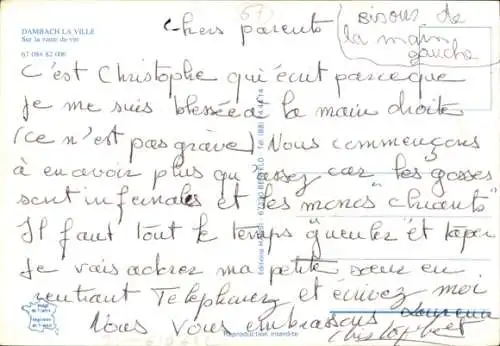 DAMBACH LA VILLE
Sur la route du vin
67 084 82 006
67
Chers parents
Bisous de
la main
gauche
C'est Christophe qui écrit parceque
je me suis blessée à la main droite
(ce n'est pas grave) Nous commençons
à en avoir plus qu'assez car les gosses
sont infernales et les monos "chiants"
Il faut tout le temps "gueuler" et taper
Je vais adorer ma petite sœur en
rentrant Téléphonez et écrivez moi
Nous Vous embrassons Laurence
Christophe
Reproduction interdite